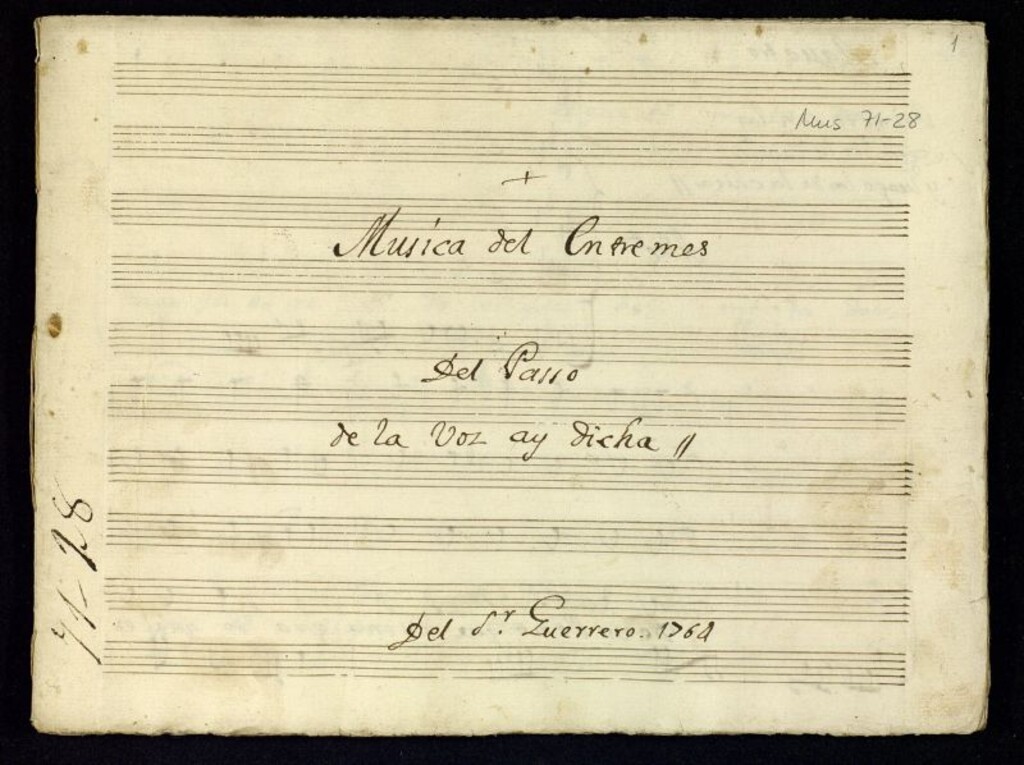 1
Mus 71-28
+
Musica del Entremes
Del Passo
de la Voz ay dicha //
Del Sr. Guerrero. 1764
71-28